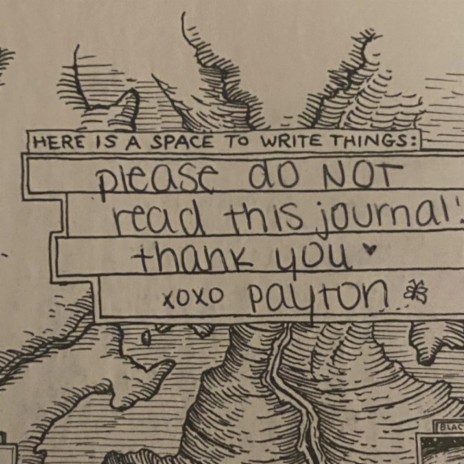 HERE IS A SPACE TO WRITE THINGS:
please do NOT
read this journal!
thank you
xoxo payton
BLAC